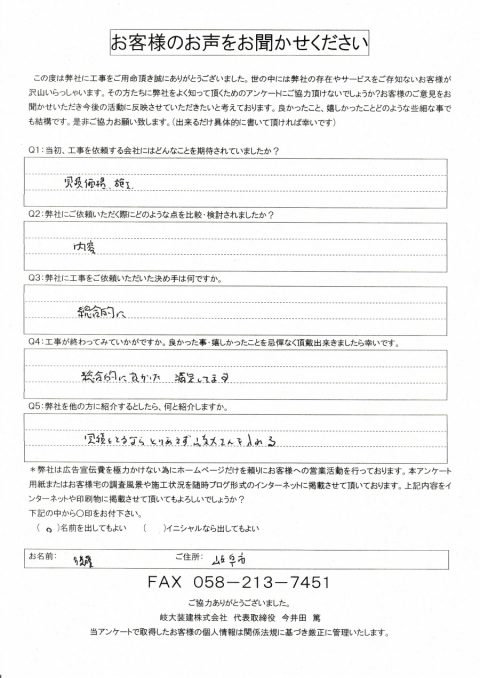 お客様のお声をお聞かせください
この度は弊社に工事をご用命頂き誠にありがとうございました。世の中には弊社の存在やサービスをご存知ないお客様が
沢山いらっしゃいます。その方たちに弊社をよく知って頂くためのアンケートにご協力頂けないでしょうか?お客様のご意見をお
聞かせいただき今後の活動に反映させていただきたいと考えております。良かったこと、嬉しかったことどのような些細な事で
も結構です。是非ご協力お願い致します。(出来るだけ具体的に書いて頂ければ幸いです)
Q1:当初、工事を依頼する会社にはどんなことを期待されていましたか?
見積価格、施工
Q2:弊社にご依頼いただく際にどのような点を比較・検討されましたか?
内容
Q3:弊社に工事をご依頼いただいた決め手は何ですか。
総合的に
Q4:工事が終わってみていかがですか。良かった事・嬉しかったことを忌憚なく頂戴出来きましたら幸いです。
総合的に良かった 満足してます
Q5:弊社を他の方に紹介するとしたら、何と紹介しますか。
見積もとるなら とりあえず 岐大さんを入れる
*弊社は広告宣伝費を極力かけない為にホームページだけを頼りにお客様への営業活動を行っております。本アンケート
用紙またはお客様宅の調査風景や施工状況を随時ブログ形式のインターネットに掲載させて頂いております。上記内容をイ
ンターネットや印刷物に掲載させて頂いてもよろしいでしょうか?
下記の中から○印をお付下さい。
(○)名前を出してもよい ( )イニシャルなら出してもよい
お名前: ご住所: 岐阜市
FAX 058-213-7451
ご協力ありがとうございました。
岐大装建株式会社 代表取締役 今井田 篤
当アンケートで取得したお客様の個人情報は関係法規に基づき厳正に管理いたします。